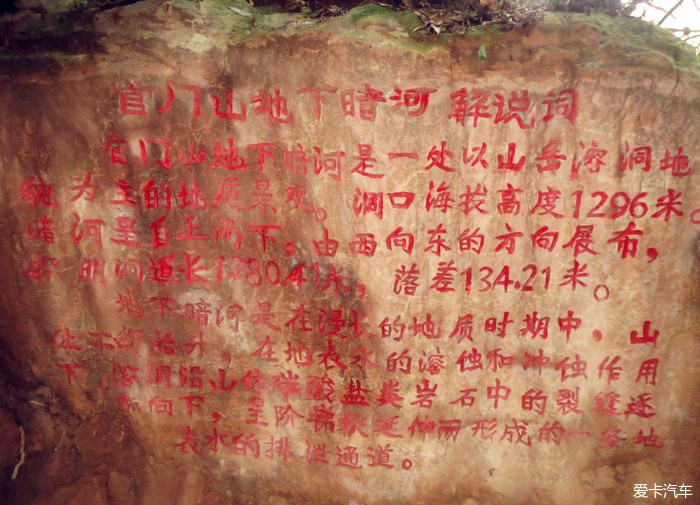 官门山地下暗河 解说词
官门山地下暗河是一处以山岳溶洞地
貌为主的地质景观。洞口海拔高度1296米,
暗河呈自上而下,由西向东的方向展布,
明河道长1280.41米,落差134.21米。
地下暗河是在漫长的地质时期中,山
体不断抬升,在地表水的溶蚀和冲蚀作用
下。溶洞沿山体碳酸盐类岩石中的裂缝逐
渐向下,呈阶梯状延伸而形成的一条地
表水的排泄通道。
爱卡汽车